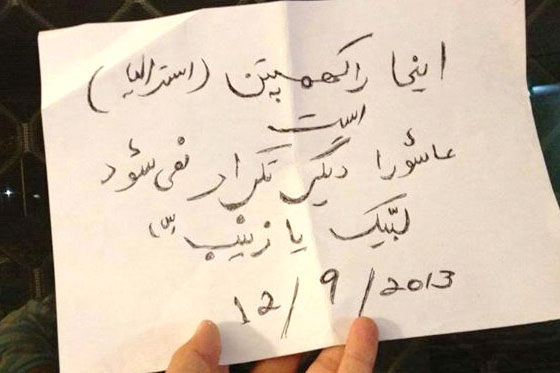 اینجا راکهمپتن (استرالیا)
است
عاشورا دیگر تکرار نمی شود
لبّیک یا زینب (س)
12/9/2013